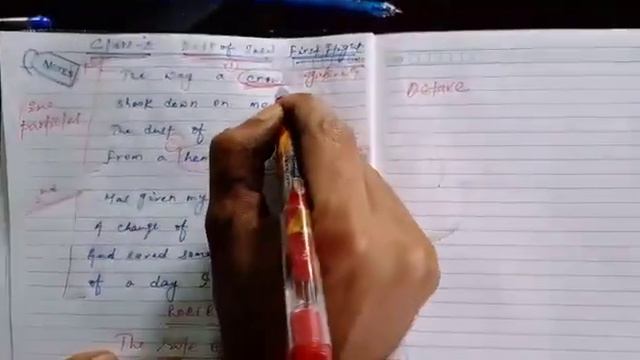 Class-X Dust of Snow First Flight
NOTES
The way a crow
Shook down on me
The dust of
From a Hem
Has given my
A change of
And saved some
of a day I
ROBER
The
Octave
particles